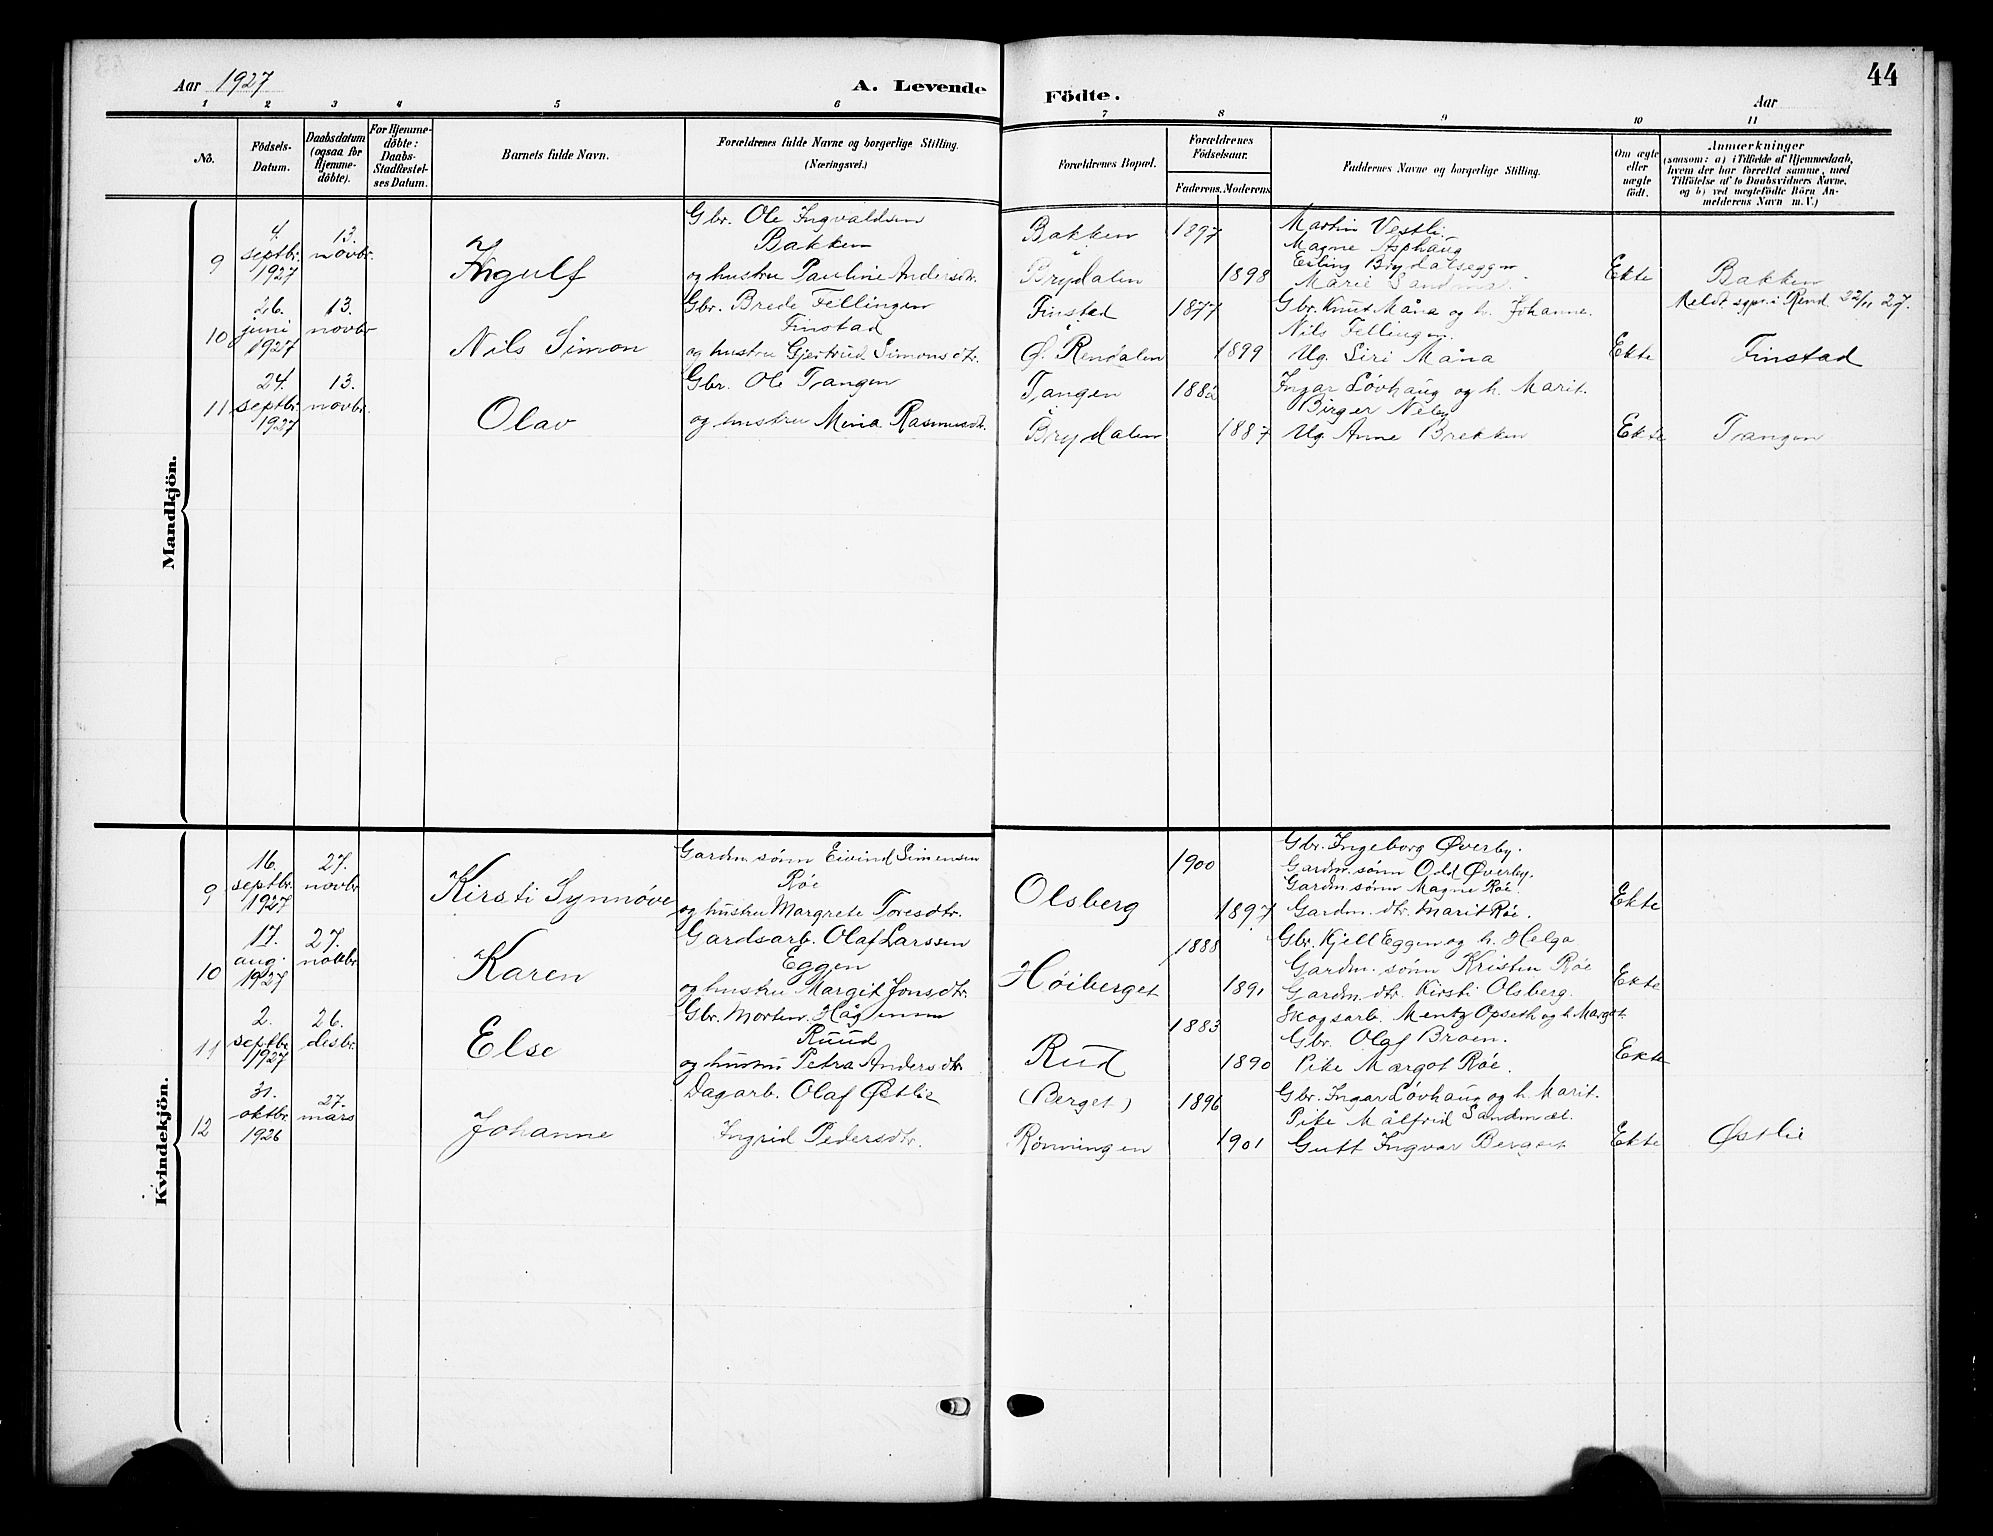 44
Aar 1927
A. Levende
Födte.
Aar
1 2 3 4 5 6 7 8 9 10 11
No.
Födsels-
Datum.
Daabsdatum
(ogsaa for
Hjemme-
döbte).
For Hjemme-
döbte:
Daabs-
Stadfæstel-
ses Datum.
Barnets fulde Navn.
Forældrenes fulde Navne og borgerlige Stilling.
(Næringsvei.)
Forældrenes Bopæl.
Forældrenes
Födselsaar.
Faderens. Moderens.
Faddernes Navne og borgerlige Stilling.
Om ægte
eller
uægte
födt.
Anmærkninger
(saasom: a) i Tilfælde af Hjemmedaab,
hvem der har forrettet samme, med
Tilföielse af to Daabsvidners Navne,
og b) ved uægtefödte Börn An-
melderens Navn m. V.)
Mandkjön.
9
4.
septbr.
1927
13.
novbr.
Ingulf
Gbr. Ole Ingvaldsen
Bakken
og hustru Pauline Andersdtr.
Bakken
i
Brydalen
1897
1898
Martin Vestli.
Magne Asphaug
Erling Brydalseggen
Marie
Ekte
Bakken
10
26.
juni
1927
13.
novbr
Nils Simon
Gbr. Brede Fellingen
Finstad
og hustru Gjertrud Simonsdtr.
Finstad
i
Ø. Rendalen
1877
1899
Gbr. Knut Måna og h. Johanne.
Nils Fellingen.
Ug. Siri Måna
Ekte
Meldt sgpr. i Rend. 22/11 27.
Finstad
11
24.
septbr.
1927
13.
novbr.
Olav
Gbr. Ole Tangen
og hustru Mina Rasmusdtr.
Tangen
i
Brydalen
1882
1887
Ingar Løvhaug og h. Marit.
Birger
Ug. Anne Brekken
Ekte
Tangen
Kvindekjön.
9
16.
septbr.
1927
27.
novbr
Kirsti Synnøve
Gardm. sønn Eivind Simensen
Røe
og hustru Margrete Toresdtr.
Olsberg
1900
1897
Gbr. Ingeborg Øverby.
Gardm. sønn Odd Øverby.
Gardm. sønn Magne Røe.
Gardm. dtr. Marit Røe.
Ekte
10
17.
aug.
1927
27.
novbr
Karen
Gardsarb. Olaf Larssen
Eggen
og hustru Margit Jonsdtr.
Høiberget
1888
1891
Gbr. Kjell Eggen og h. Helga
Gardm. sønn Kristen Røe
Gardm. dtr. Kirsti Olsberg.
Ekte
11
2.
septbr
1927
26.
desbr.
Else
Gbr. Morten
Ruud
og hustru Petra Andersdtr
Rud
1883
1890
Skogsarb. Mentz Opseth og h. Margot
Gbr. Olaf Broen.
Pike Margot Røe.
Ekte
12
31.
oktbr.
1926
27.
mars
Johanne
Dagarb. Olaf Østlie
Ingrid Pedersdtr.
(Berget)
Rønningen
1896
1901
Gbr. Ingar Løvhaug og h. Marit.
Pike Målfrid Sandmæl.
Gutt Ingvar Berget
Ekte
Østlie